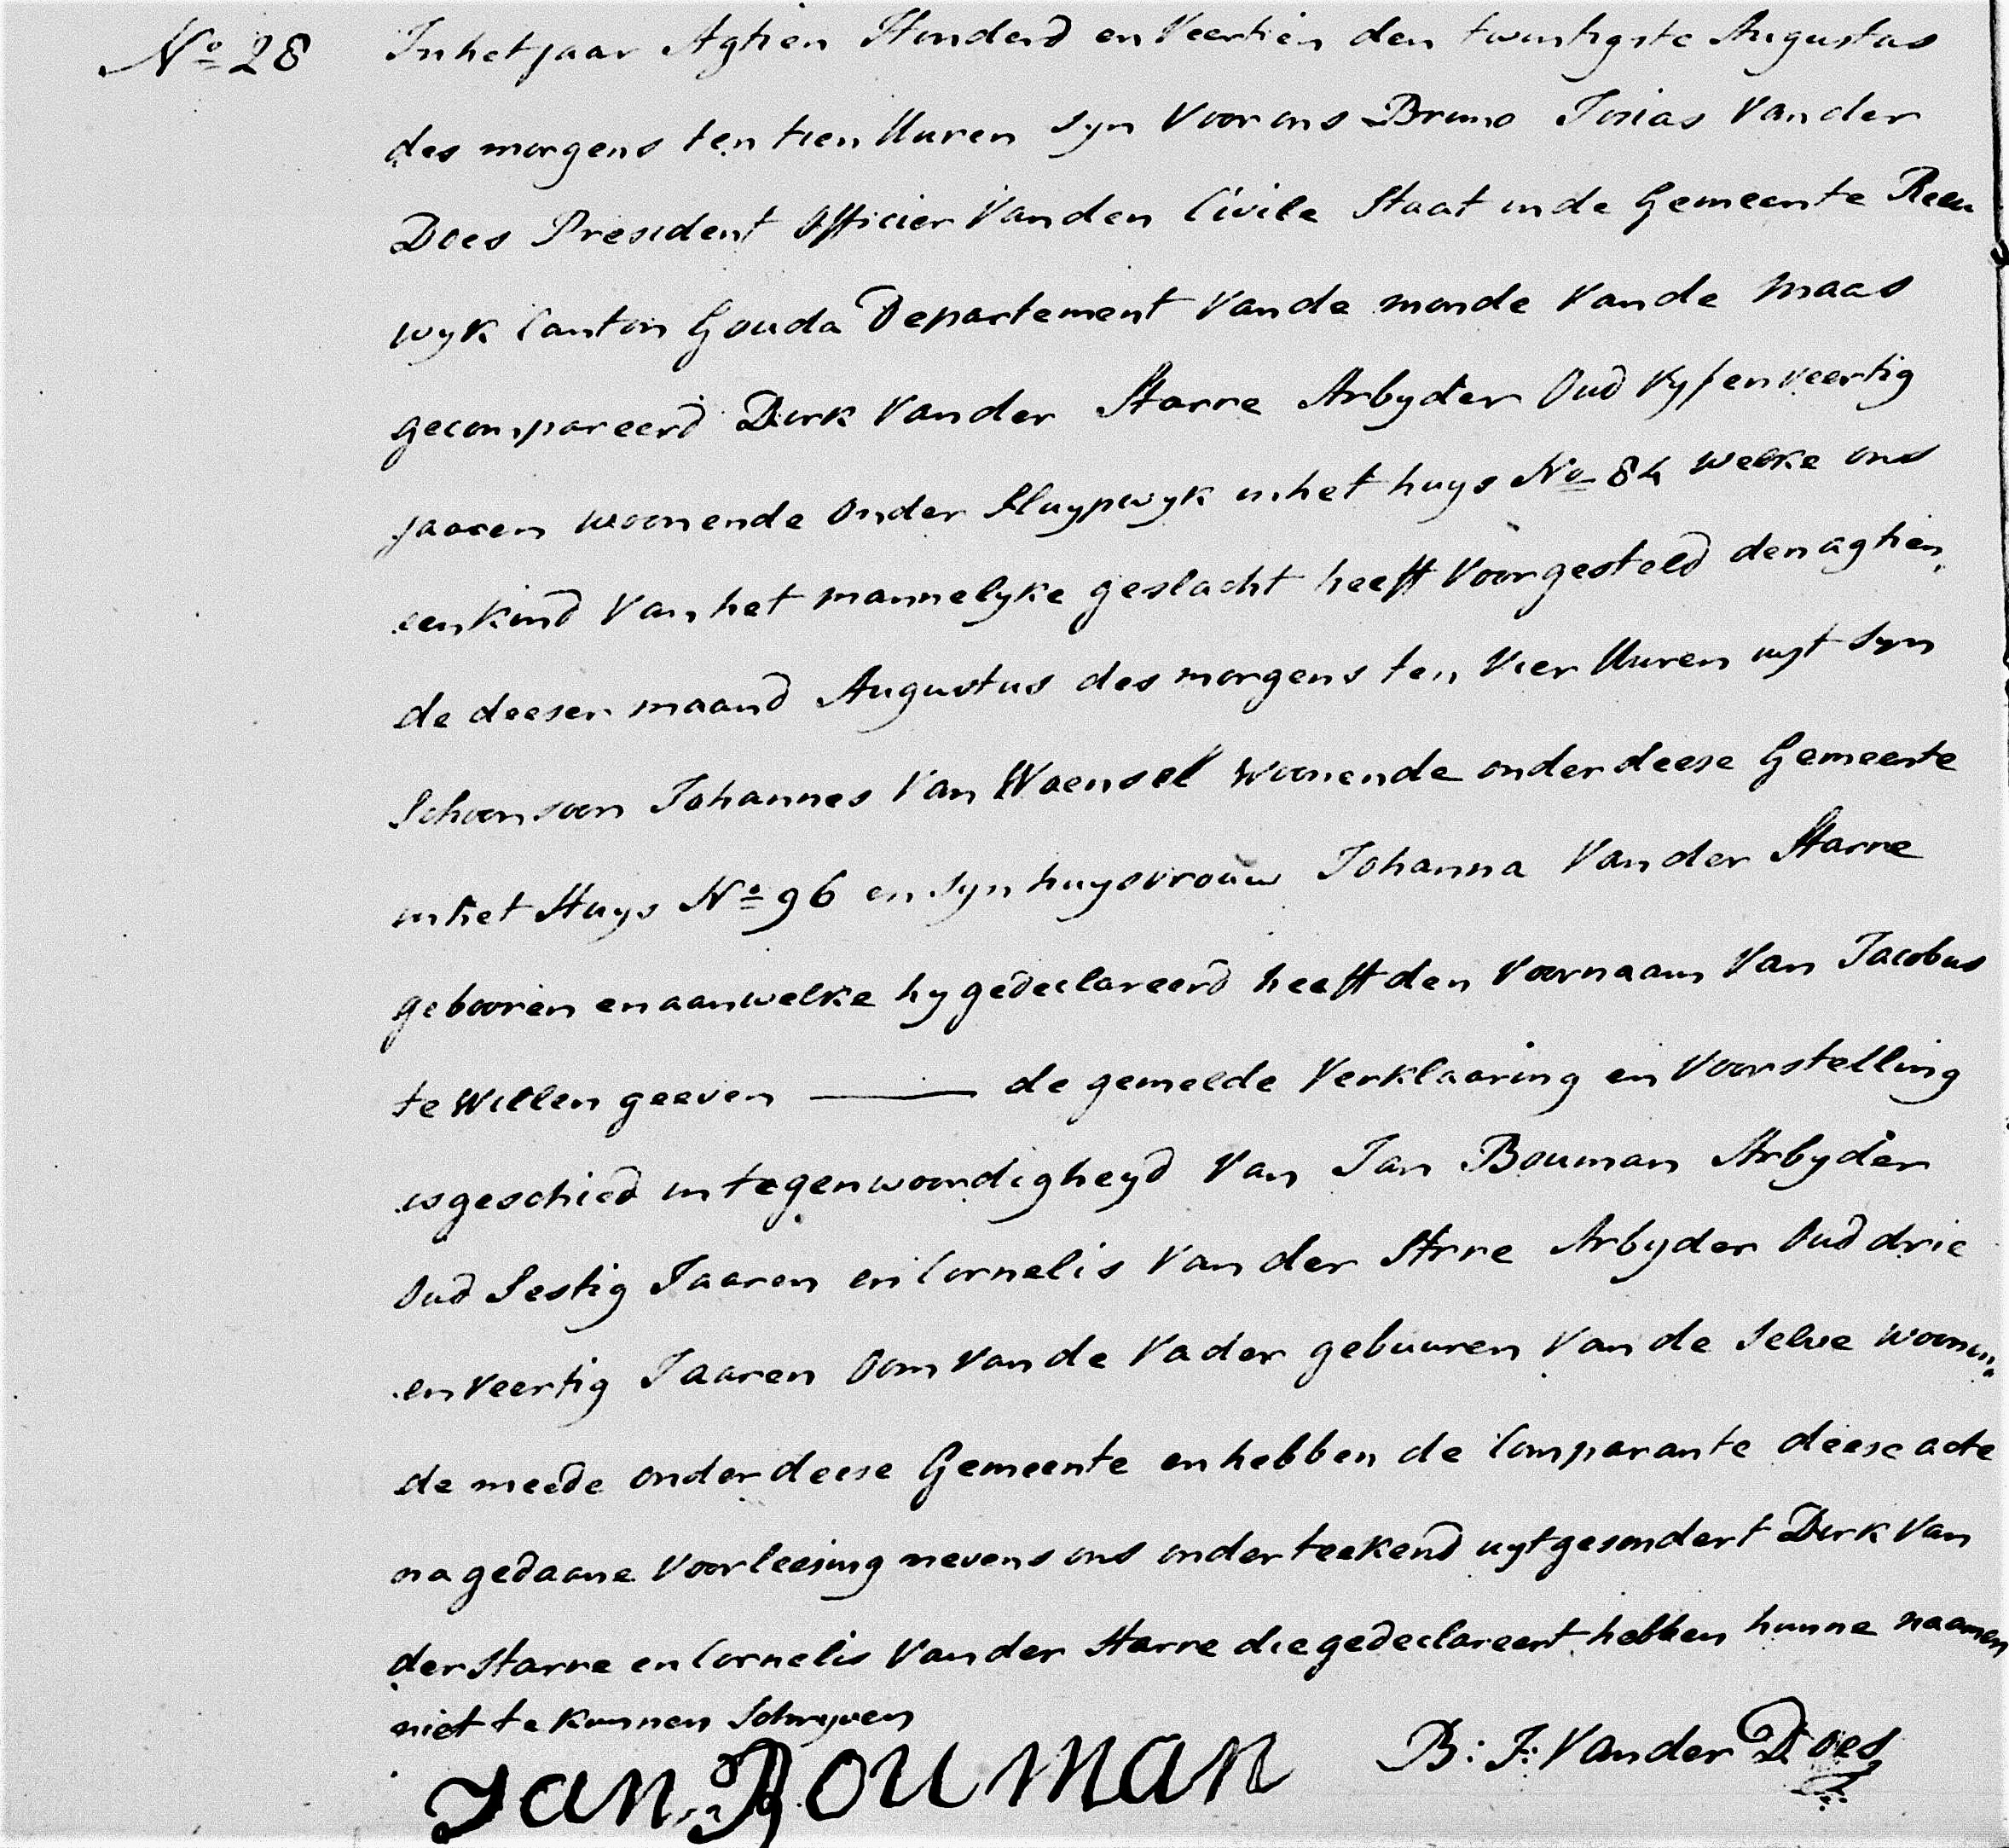 No 28 In het jaar Agtien Honderd en Veertien den twintigste Augustus
des morgens ten tien Uuren Syn Voor ons Bruno Josias Vander
Does President Officier Vanden Civile Staat in de Gemeente Reeu
wyk Canton Gouda Departement Vande monde Vande Maas
gecompareerd Dirk Vander Starre Arbyder Oud Vyf en veertig
jaaren woonende Onder Sluypwyk in het huys No 84 welke ons
een kind Van het mannelyke geslacht heeft Voorgesteld den agtien,
de deeser maand Augustus des morgens ten Vier Uuren uyt Syn
Schoonsoon Johannes Van Waensel woonende onder deese Gemeente
in het Huys No 96 en Syn huysvrouw Johanna Van der Starre
gebooren en aan welke hy gedeclareerd heeft den Voornaam Van Jacobus
te Willen geeven ——— de gemelde Verklaaring en Voorstelling
is geschied in tegenwoordigheyd Van Jan Bouman Arbyder
Oud Sestig Jaaren en Cornelis Van der Strre Arbyder Oud drie
en Veertig Jaaren Oom Van de Vader gebuuren Van de Selve woonen,,
de meede onder deese Gemeente en hebben de Comparante deese acte
na gedaane Voorleesing nevens ons onderteekend uytgesondert Dirk Van
der Starre en Cornelis Van der Starre die gedeclareert hebben hunne naamen
niet te kunnen Schryven
Jan Bouman B: J: Vander Does